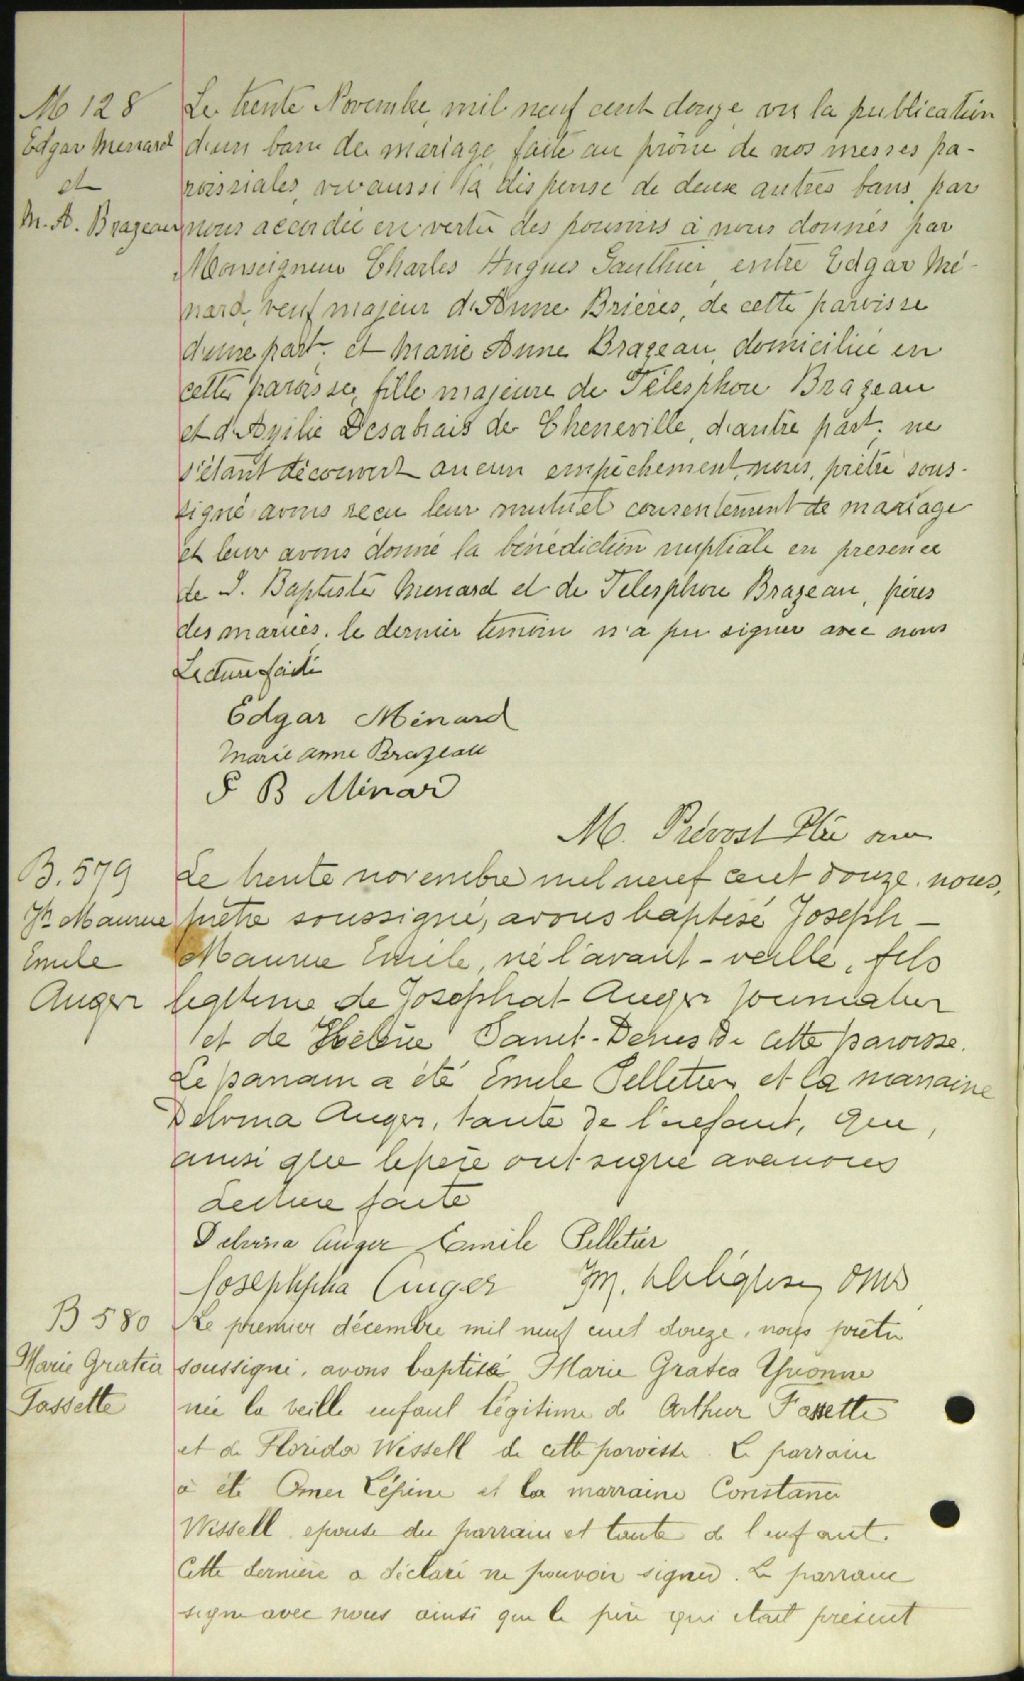 M 128
Edgar Menard
et
M. A. Brazeau
Le trente Novembre, mil neuf cent douze, vu la publication
d'un banc de mariage, faite au prône de nos messes pa-
roissiales, vu aussi la dispense de deux autres bans, par
nous accordée en vertu des pouvoirs à nous donnés par
Monseigneur Charles Hugues Gauthier, entre Edgar Mé-
nard, veuf majeur d'Anne Brières, de cette paroisse
d'une part; et Marie Anne Brazeau, domiciliée en
cette paroisse, fille majeure de Télesphore Brazeau
et d'Azilie Desabrais de Cheneville, d'autre part; ne
s'étant découvert aucun empêchement, nous, prêtre sous-
signé avons reçu leur mutuel consentement de mariage
et leur avons donné la bénédiction nuptiale en presence
de J. Baptiste Menard et de Telesphore Brazeau, pères
des mariés, le dernier temoin n'a pu signer avec nous
Lecture faite
Edgar Ménard
Marie anne Brazeau
J B Ménard
M. Prévost Ptre omi
B. 579
Jh Maurice
Emile
Auger
Le trente novembre mil neuf cent douze, nous,
prêtre soussigné, avons baptisé Joseph-
Maurice Emile, né l'avant-veille, fils
legitime de Josephat Auger journalier
et de Hélène Saint-Denis de cette paroisse.
Le parrain a été Emile Pelletier et la marraine
Delvina Auger, tante de l'enfant, qui,
ainsi que le père ont signé avec nous
Lecture faite
Delvina Auger Emile Pelletier
Josephpha Auger J.M. omi
B 580
Marie Gratia
Fassette
Le premier décembre mil neuf cent douze, nous prêtre
soussigné, avons baptisé Marie Gratia Yvonne
née la veille enfant légitime de Arthur Fassette
et de Florida Wissell de cette paroisse. Le parrain
a été Omer Lépine et la marraine Constance
Wissell epouse du parrain et tante de l'enfant.
Cette dernière a déclaré ne pouvoir signer. Le parrain
signe avec nous ainsi que le père qui était présent